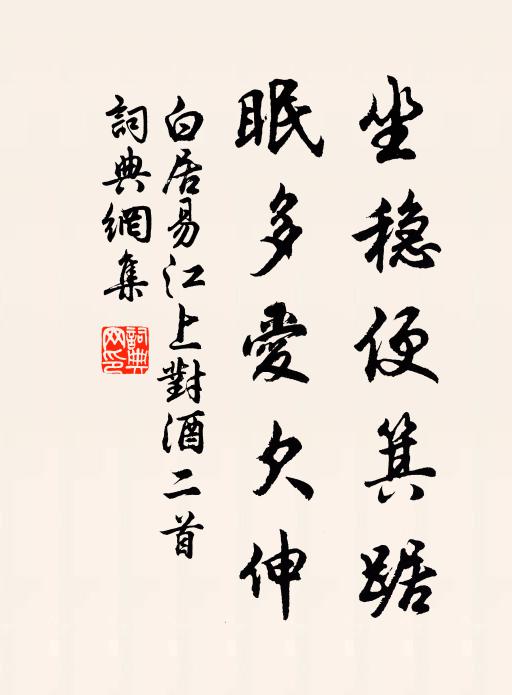 坐稳便箕踞
眠多愛欠伸
白居易江上對酒二首
詞典網集
詞典網印